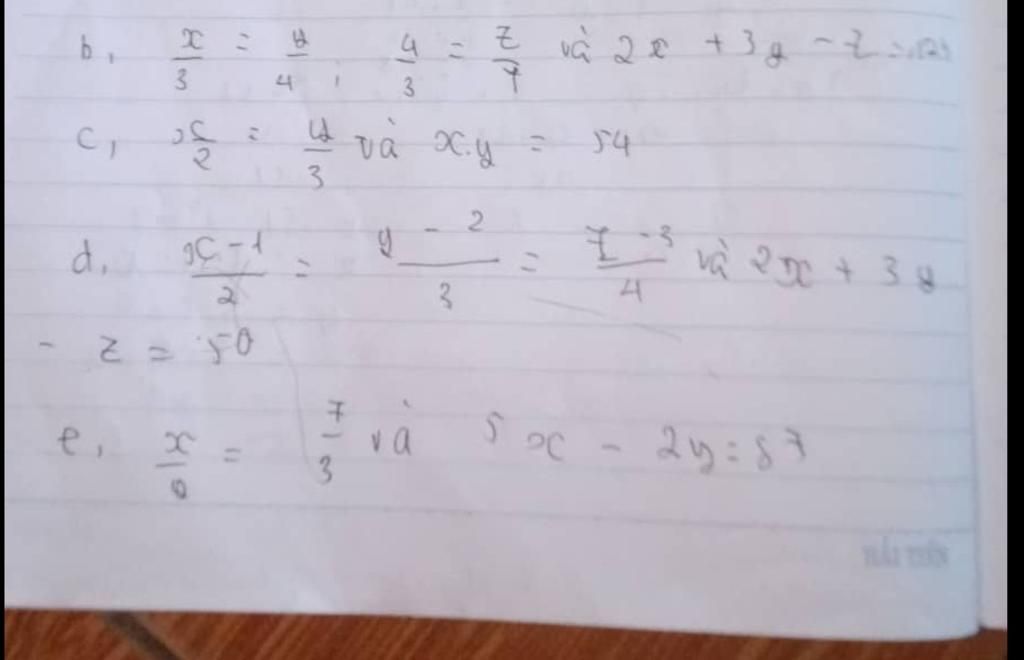 b, x/3 = y/4 ; y/3 = z/7 và 2x + 3y - z =
c, x/2 = y/3 và x.y = 54
d, x-1/2 = y-2/3 = z-3/4 và 2x + 3y
- z = 50
e, x/y = 7/3 và 5x - 2y = 87